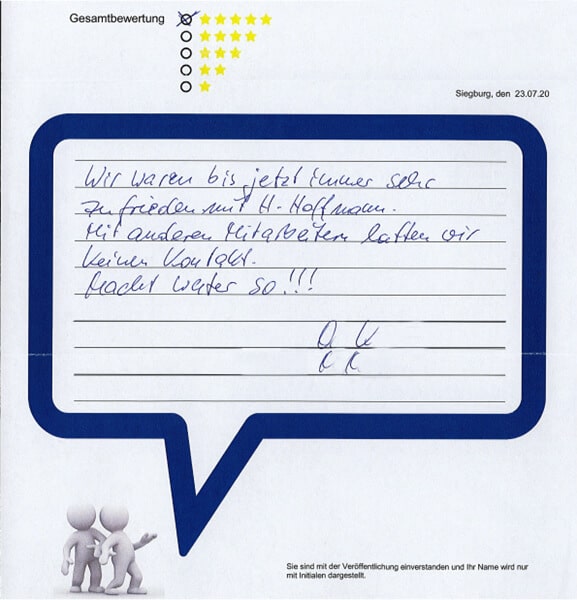 Gesamtbewertung
Siegburg, den 23.07.20
Wir waren bis jetzt immer sehr
zufrieden mit H. Hoffmann.
Mit anderen Mitarbeitern hatten wir
keinen Kontakt.
Macht weiter so!!!
Sie sind mit der Veröffentlichung einverstanden und Ihr Name wird nur
mit Initialen dargestellt.